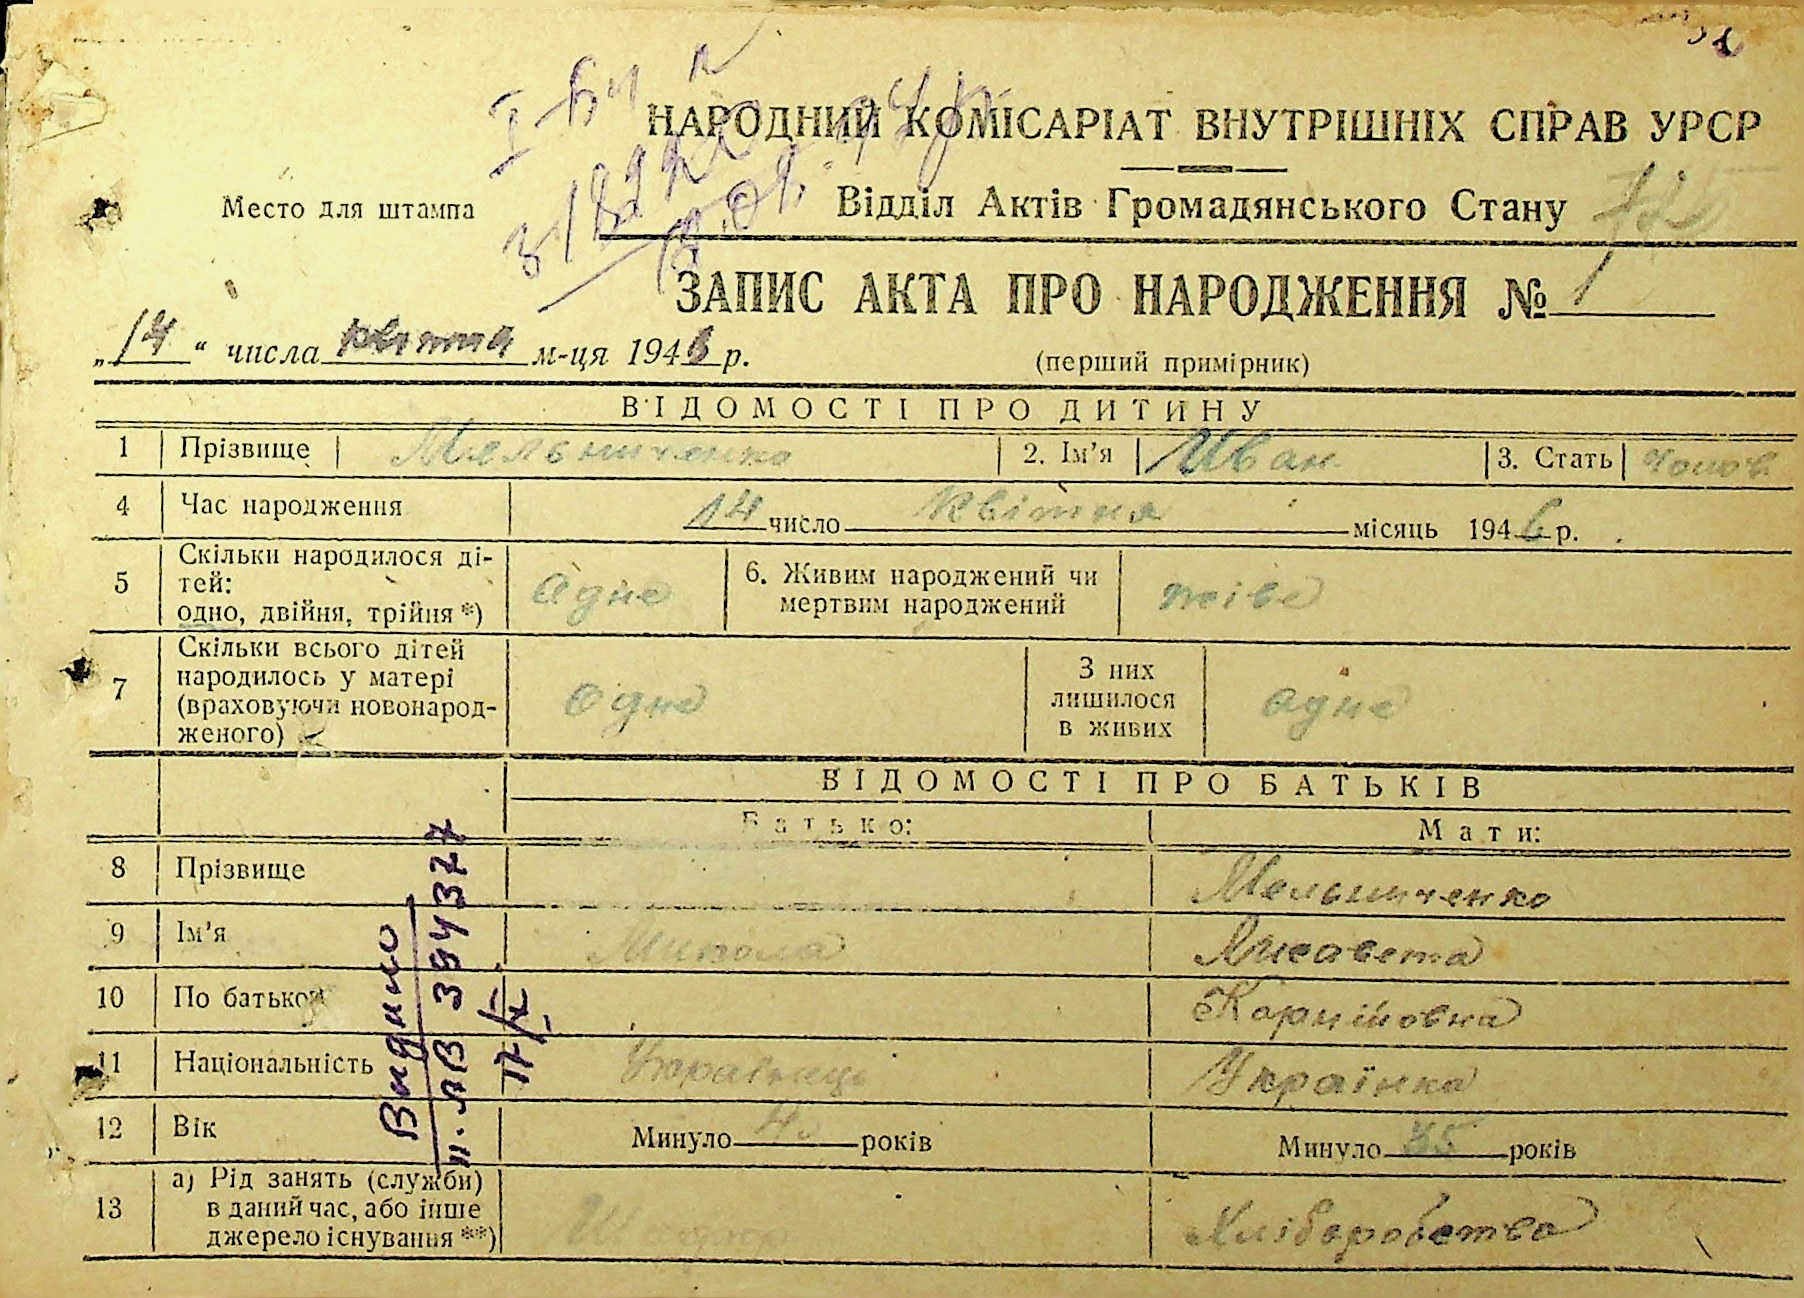 НАРОДНИЙ КОМІСАРІАТ ВНУТРІШНІХ СПРАВ УРСР
Место для штампа
Відділ Актів Громадянського Стану
ЗАПИС АКТА ПРО НАРОДЖЕННЯ №
„14“ числа квітня м-ця 1946 р.
(перший примірник)
ВІДОМОСТІ ПРО ДИТИНУ
1 Прізвище Мельниченко 2. Ім'я Иван 3. Стать чолов
4 Час народження 14 число квітня місяць 1946 р.
5 Скільки народилося ді-
тей:
одно, двійня, трійня *) одне
6. Живим народжений чи
мертвим народжений живе
7 Скільки всього дітей
народилось у матері
(враховуючи новонарод-
женого) одне
З них
лишилося
в живих одне
ВІДОМОСТІ ПРО БАТЬКІВ
Батько: Мати:
8 Прізвище Мельниченко
9 Ім'я Микола Лисавета
10 По батькові Корнійовна
11 Національність Українець Українка
12 Вік Минуло років Минуло 35 років
13 а) Рід занять (служби)
в даний час, або інше
джерело існування **) Хліборобство
Видано
ЛВ 394377